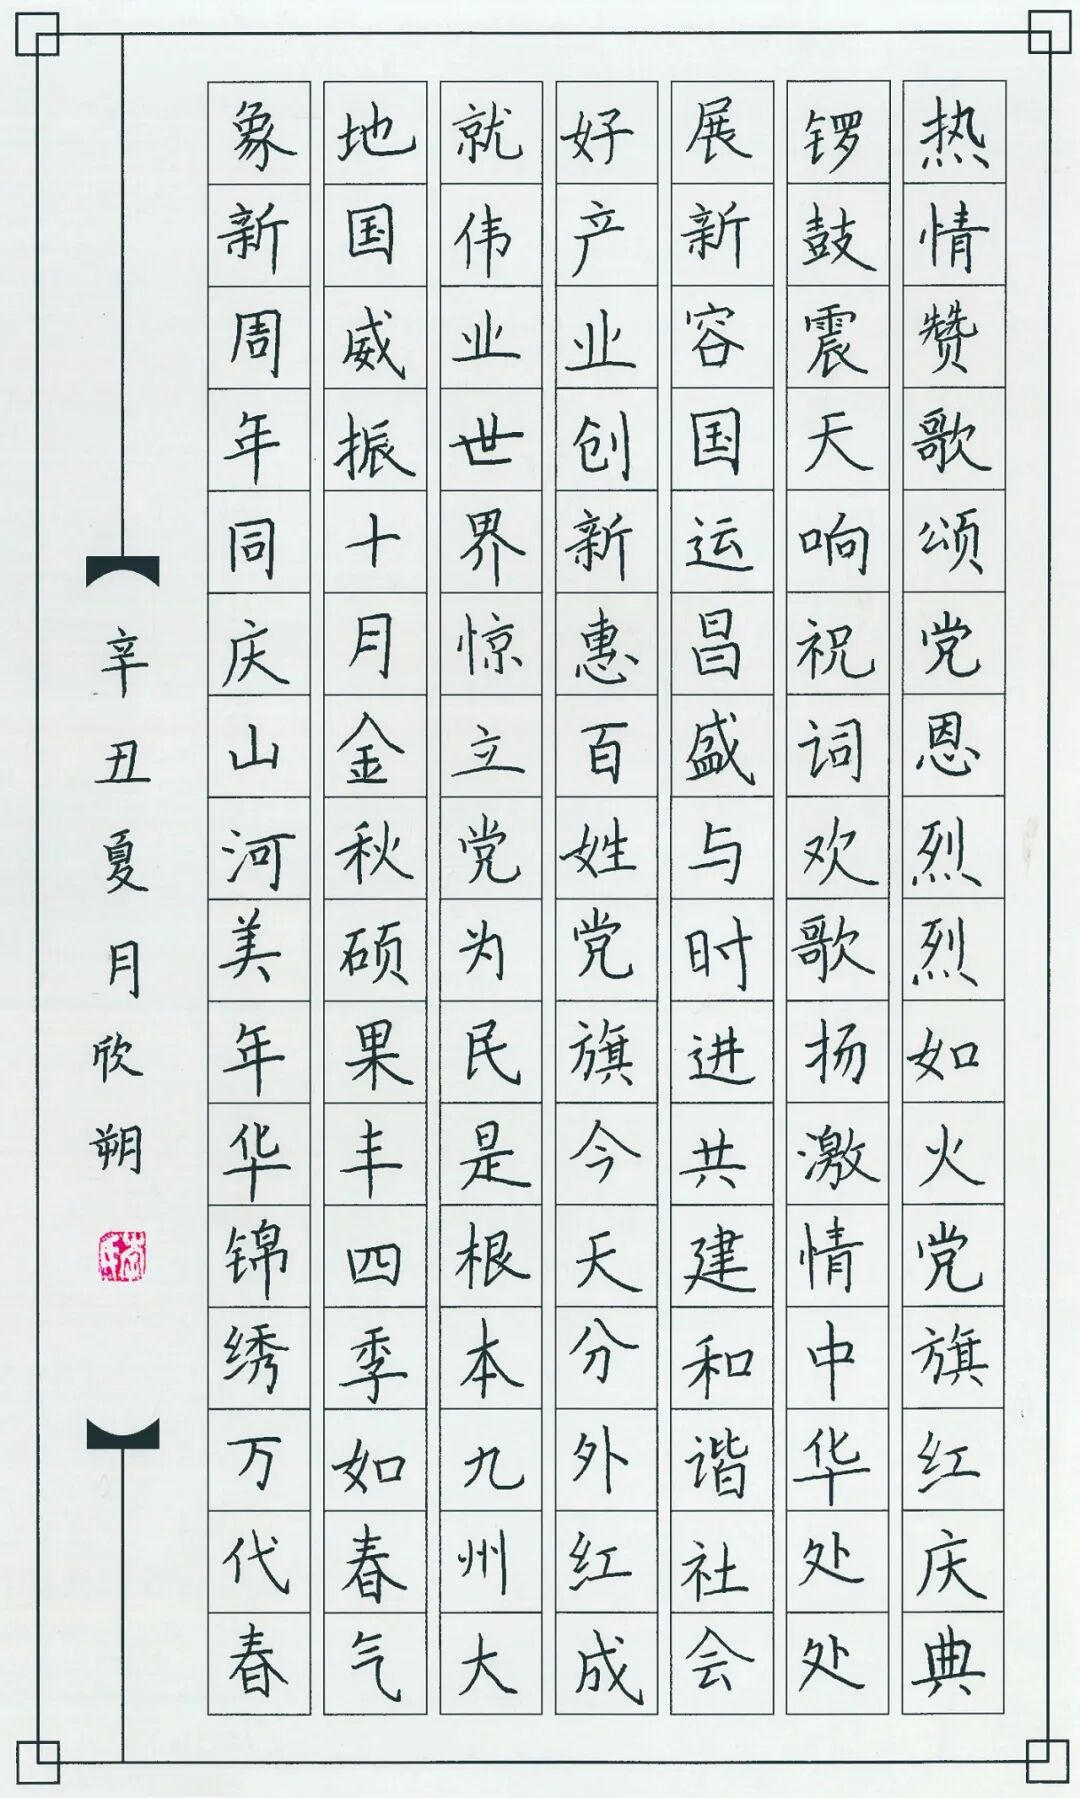 热情赞歌颂党恩烈烈如火党旗红庆典
锣鼓震天响祝词欢歌扬激情中华处处
展新容国运昌盛与时进共建和谐社会
好产业创新惠百姓党旗今天分外红成
就伟业世界惊立党为民是根本九州大
地国威振十月金秋硕果丰四季如春气
象新周年同庆山河美年华锦绣万代春
辛丑夏月欣朔